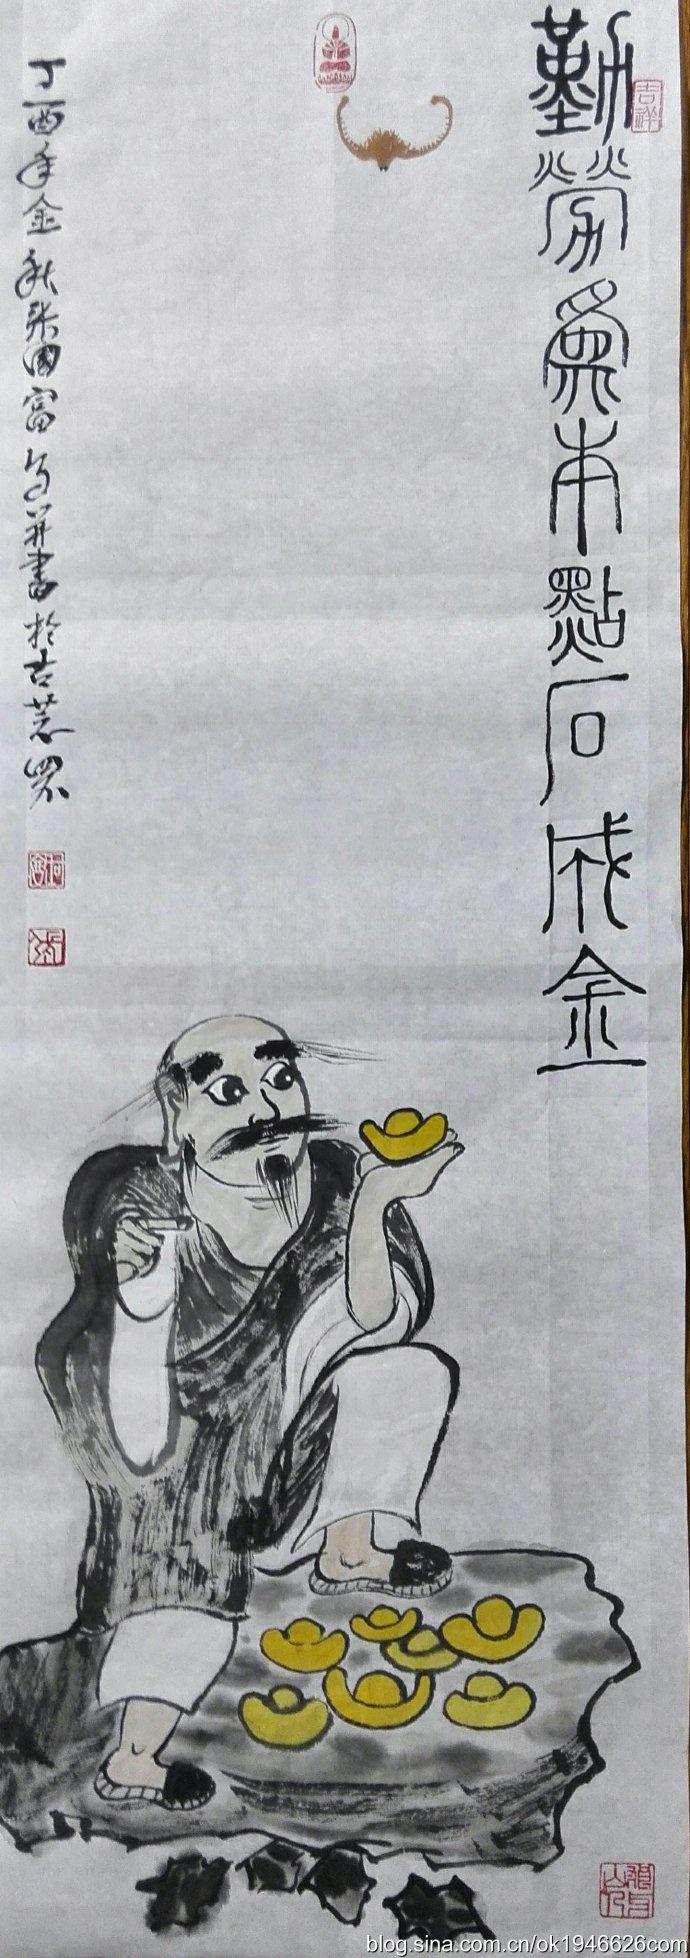 勤勞為本點石成金
吉祥
丁酉年金秋張國富寫並書於古
blog.sina.com.cn/ok1946626com